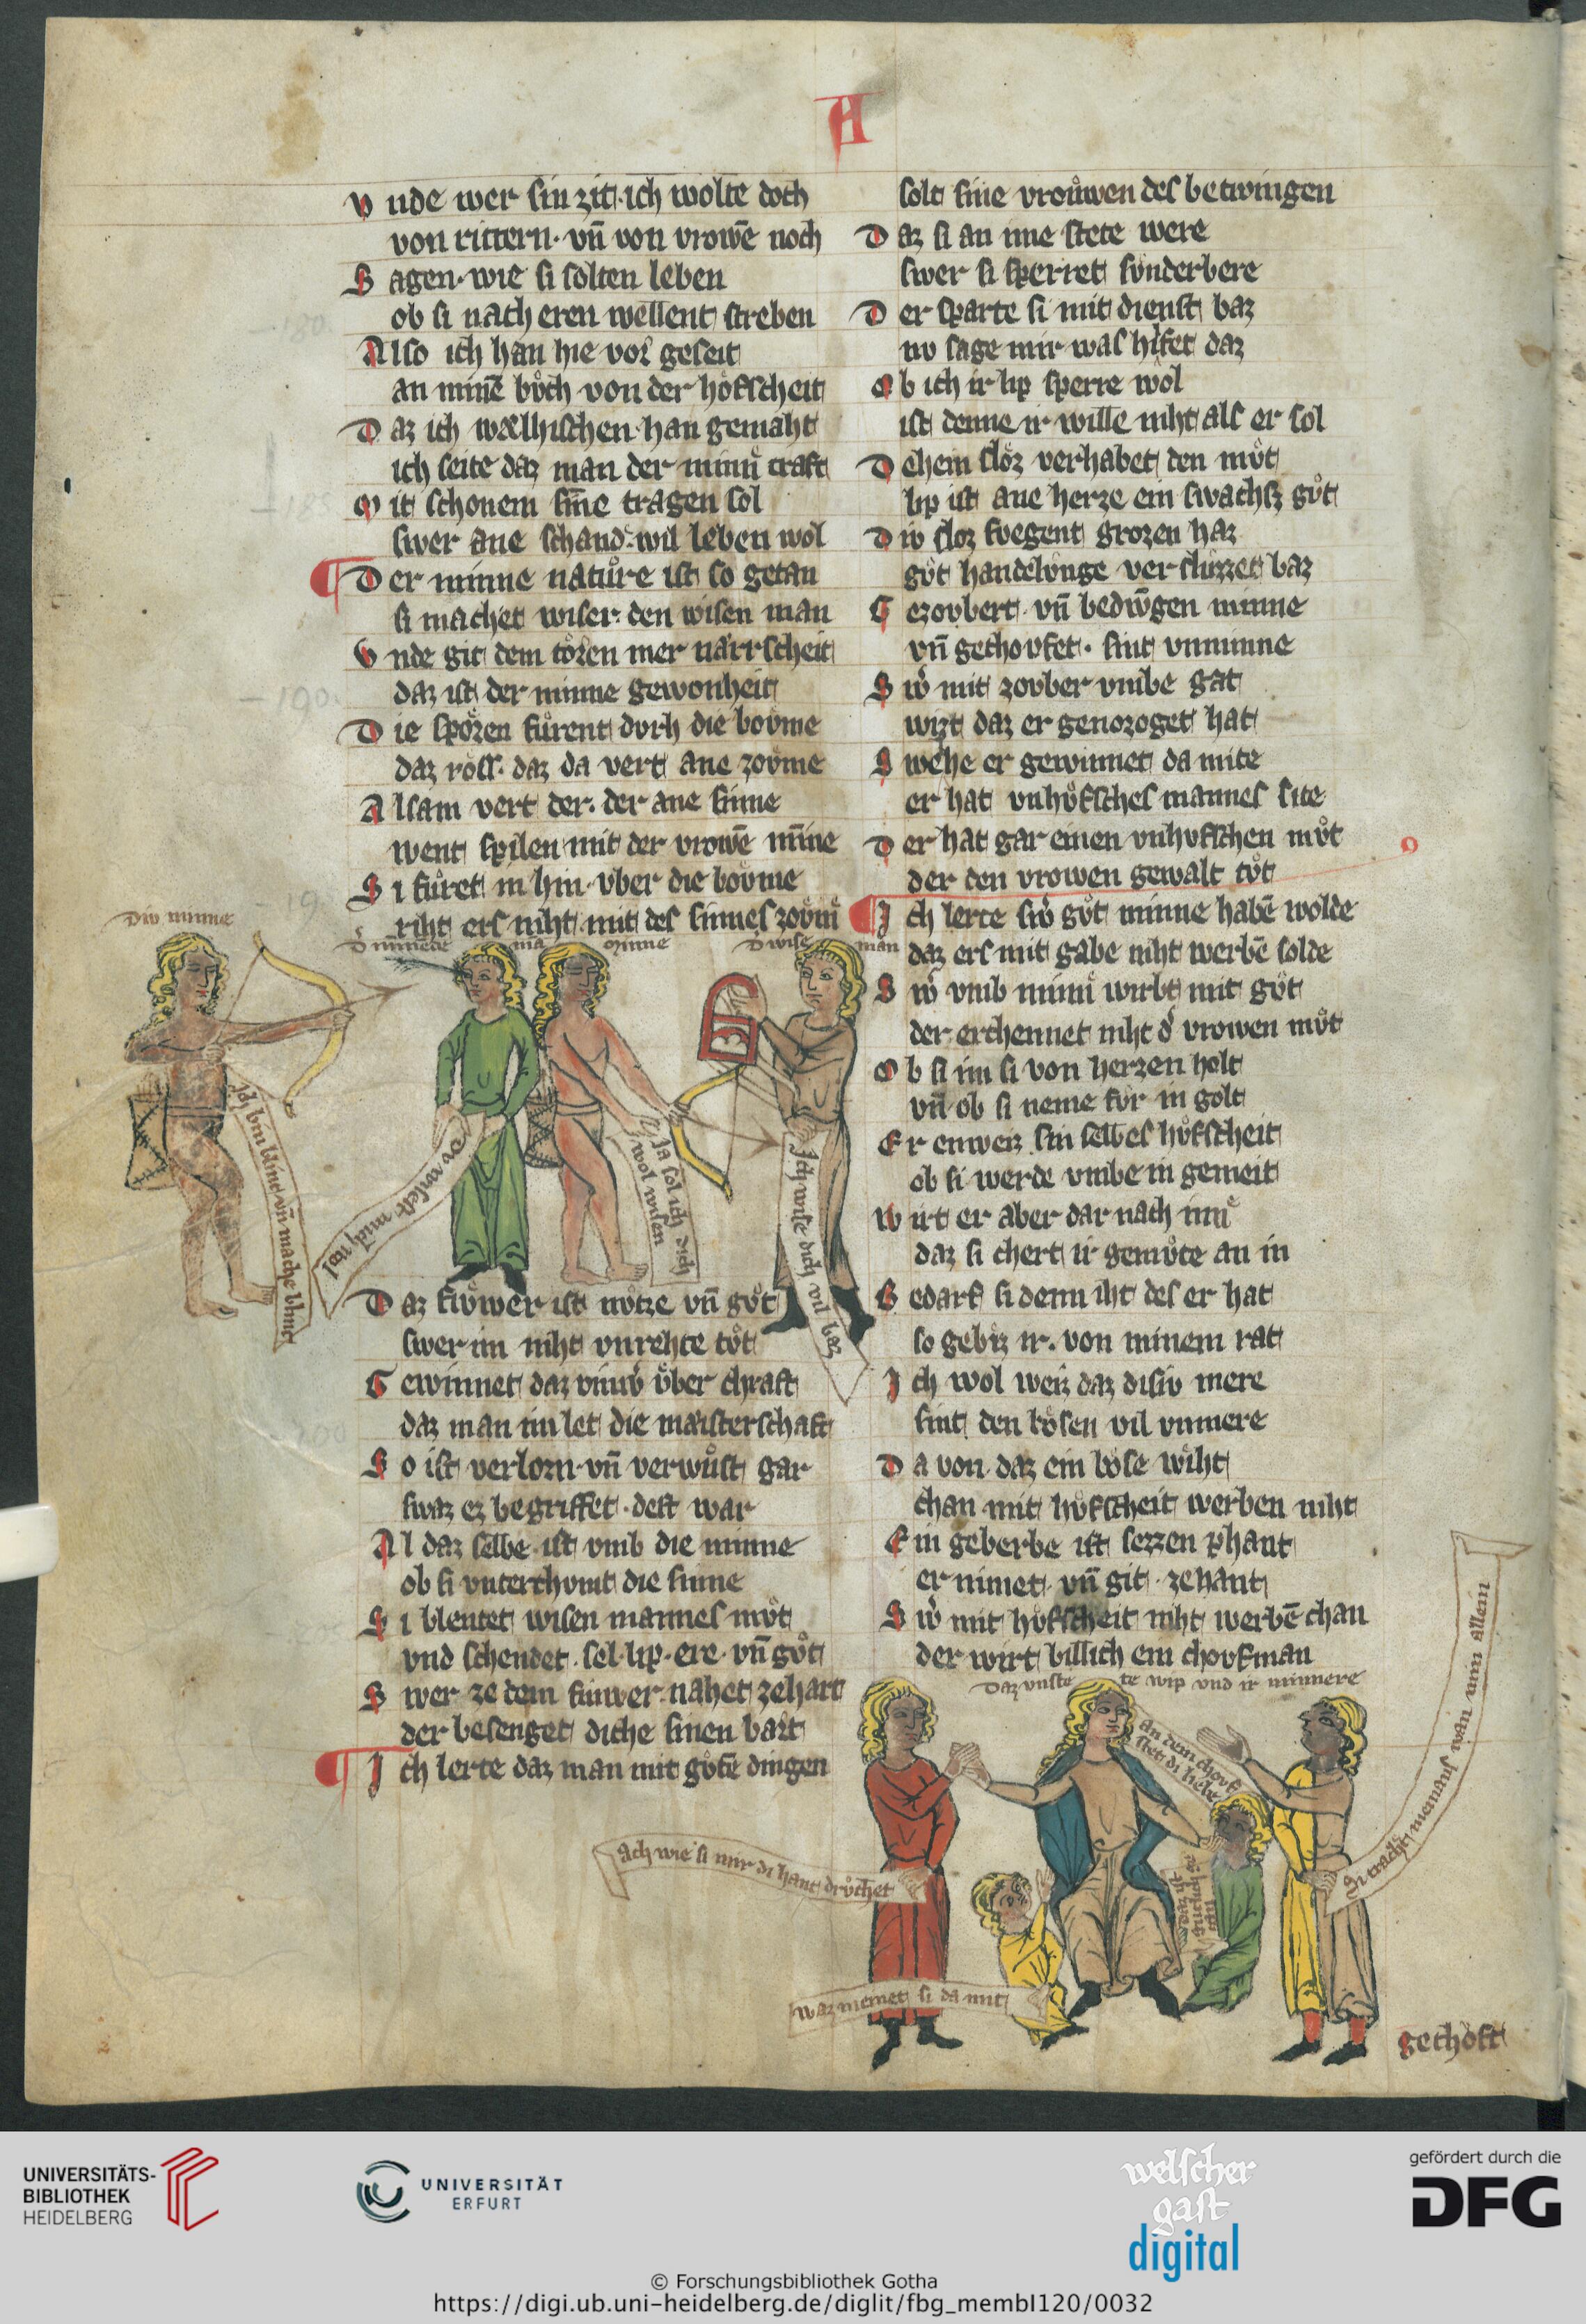 A
vnde wer sin zit· ich wolte doch
von rittern· vn̄ von vrowē noch
Sagen· wie si solten leben
ob si nach eren wellent streben
Also ich han hie vor geseit
an minē bůch von der hôfscheit
Daz ich wælhischen han gemaht
ich seite daz man der minn͛ craft
Mit schonem sīne tragen sol
swer ane schand͛ wil leben wol
¶ Der minne natůre ist so getan
si machet wiser· den wisen man
Vnde git dem tôren mer narrscheit
daz ist der minne gewonheit
Die sporen fůrent dvrh die bovme
daz ross· daz da vert ane zovme
Alsam vert der· der ane sinne
went spilen mit der vrowē mīne
Si fůret in hin· vber die bovme
riht ers niht mit des sinnes zovm͛
Div minne
D͛ minnede man
Minne
D͛ wise man
Ich bin blint vn̄ mache blint
Dv wisest mich wol
Ja sol ich dich
wol wisen
Ich wise dich vil baz
Daz fivwer ist nvtze vn̄ gůt
swer im niht vnrehte tůt
Gewinnet daz viuw͛ vber chraft
daz man im let die maisterschaft
So ist verlorn· vn̄ verwůst gar
swaz ez begriffet· dest war
Al daz selbe· ist vmb die minne
ob si vnterchvmt die sinne
Si blentet wisen mannes mvͦt
vnd schendet· sel· lip· ere· vn̄ gvͦt
Swer ze dem fiuwer· nahet ze hart
der besenget diche sinen bart
¶ Ich lerte daz man mit gůtē dingen
solt sine vroůwen des betwingen
Daz si an ime stete were
swer si sperret svnderbere
Der sparte si mit dienst baz
nv sage mir was hilfet daz
Ob ich ir lip sperre wol
ist denne ir wille niht als er sol
Dehein sloz verhabet den mvͦt
lip ist ane herze ein swachſz gůt
Div sloz fvegent grozen haz
gůt handelvnge verslivzzet baz
Gezovbert· vn̄ bedw̄gen minne
vn̄ gechovfet· sint vnminne
Sw͛ mit zovber vmbe gat
wizt daz er genozoget hat
Swelhe er gewinnet da mite
er hat vnhvfsches mannes site
Der hat gar einen vnhvfschen mvͦt
der den vrowen gewalt tůt
¶ Ich lerte sw͛ gůt minne habē wolde
daz ers mit gabe niht werbē solde
Sw͛ vmb minn͛ wirbt mit gůt
der erchennet niht d͛ vrowen mvͦt
Ob si im si von herzen holt
vn̄ ob si neme fvr in golt
Er enweiz sin selbes hvfscheit
ob si werde vmbe in gemeit
Wirt er aber dar nach inn͛
daz si chert ir gemvͦte an in
Bedarf si denn iht des er hat
so gebiz ir· von minem rat
Ich wol weiz daz disiv mere
sint den bôsen vil vnmere
Da von· daz ein bôse wiht
chan mit hvfscheit werben niht
Ein geberbe ist sezzen phant
er nimet· vn̄ git· zehant
Sw͛ mit hvfscheit niht werbē chan
der wirt billich ein chovfman
Daz vnstete wip vnd ir minnere
An dem chovf
stet di liebe
Ach wie si mir di hant drvchet
waz meinet si da mit
Si trachtet niemans wan min allein
gechôft
UNIVERSITÄTS-
BIBLIOTHEK
HEIDELBERG
UNIVERSITÄT
ERFURT
welscher
gast
digital
gefördert durch die
DFG
© Forschungsbibliothek Gotha
https://digi.ub.uni-heidelberg.de/diglit/fbg_membI120/0032